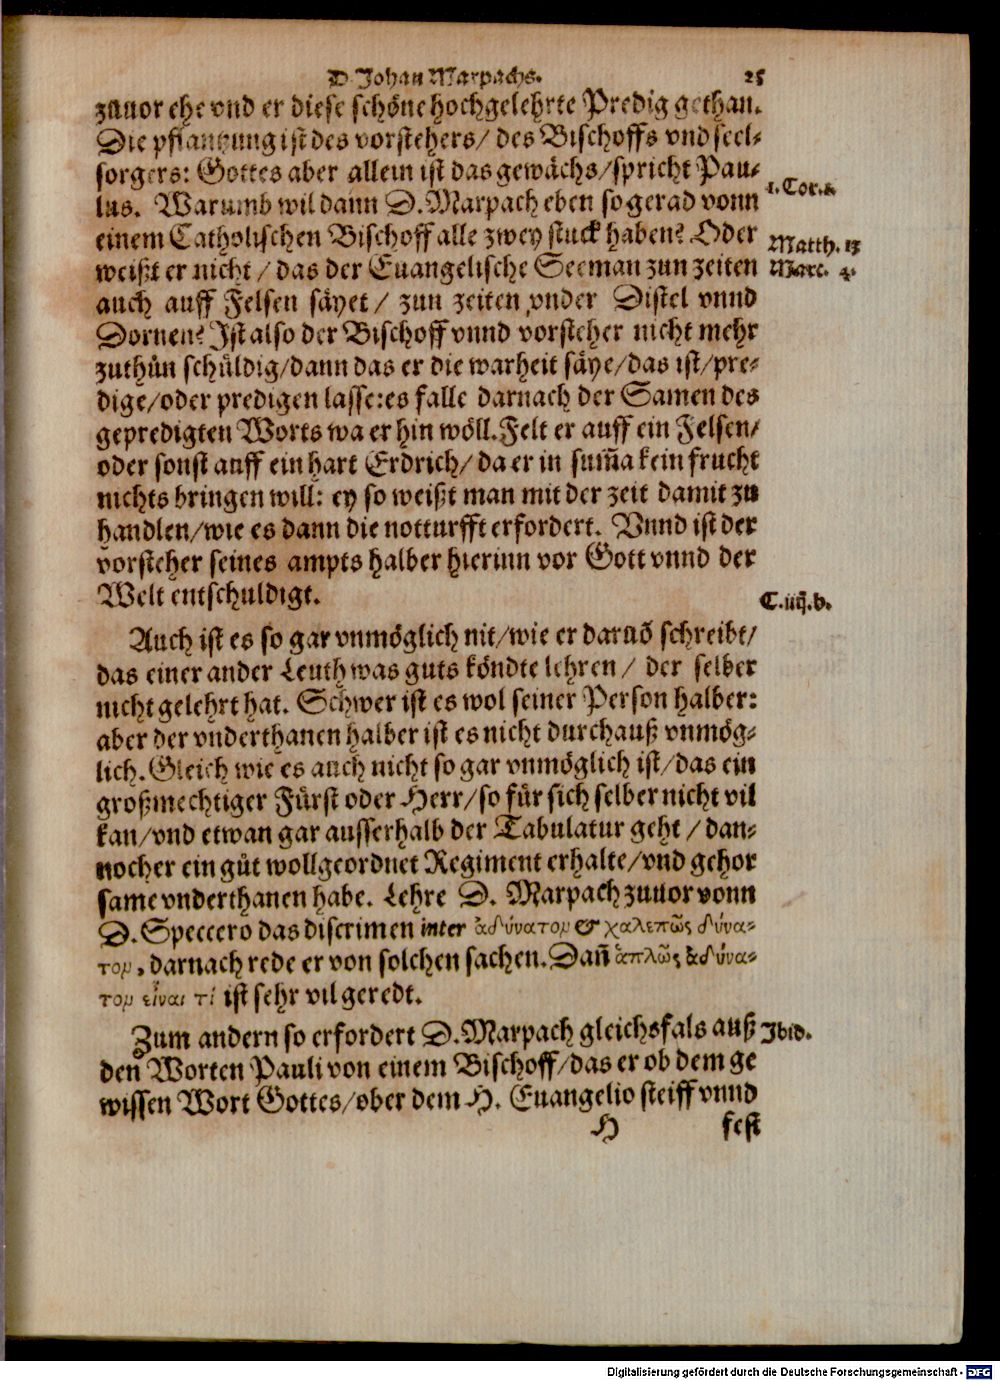 D. Johan Marpachs. 25
zuuor ehe vnd er diese schöne hochgelehrte Predig gethan.
Die pflantzung ist des vorstehers/ des Bischoffs vnd seel-
sorgers: Gottes aber allein ist das gewächs/ spricht Pau-
lus. Warumb wil dann D. Marpach eben so gerad vonn
1. Cor. 3.
einem Catholischen Bischoff alle zwey stuck haben? Oder
Matth. 13
weißt er nicht/ das der Euangelische Seeman zun zeiten
Marc. 4.
auch auff Felsen säyet/ zun zeiten vnder Distel vnnd
Dornen? Ist also der Bischoff vnnd vorsteher nicht mehr
zuthůn schüldig/ dann das er die warheit säye/ das ist/ pre-
dige/ oder predigen lasse: es falle darnach der Samen des
gepredigten Worts wa er hin wöll. Felt er auff ein Felsen/
oder sonst auff ein hart Erdrich/ da er in sum̄a kein frucht
nichts bringen will: ey so weißt man mit der zeit damit zu
handlen/ wie es dann die notturfft erfordert. Vnnd ist der
vorsteher seines ampts halber hierinn vor Gott vnnd der
Welt entschuldigt.
C. iiij. b.
Auch ist es so gar vnmöglich nit/ wie er daruō schreibt/
das einer ander Leuth was guts köndte lehren/ der selber
nicht gelehrt hat. Schwer ist es wol seiner Person halber:
aber der vnderthanen halber ist es nicht durchauß vnmög-
lich. Gleich wie es auch nicht so gar vnmöglich ist/ das ein
großmechtiger Fürst oder Herr/ so für sich selber nicht vil
kan/ vnd etwan gar ausserhalb der Tabulatur geht/ dan-
nocher ein gůt wollgeordnet Regiment erhalte/ vnd gehor
same vnderthanen habe. Lehre D. Marpach zuuor vonn
D. Speccero das discrimen inter ἀδύνατον & χαλεπῶς δύνα-
τον, darnach rede er von solchen sachen. Dan̄ ἁπλῶς ἀδύνα-
τον εἶναι τί ist sehr vil geredt.
Zum andern so erfordert D. Marpach gleichsfals auß
Ibid.
den Worten Pauli von einem Bischoff/ das er ob dem ge
wissen Wort Gottes/ ober dem H. Euangelio steiff vnnd
H fest
Digitalisierung gefördert durch die Deutsche Forschungsgemeinschaft - DFG